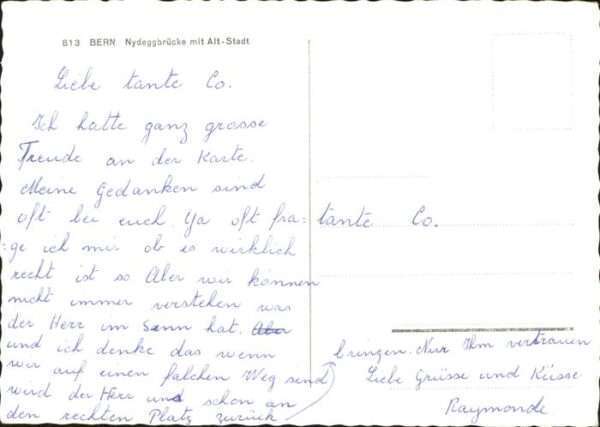 813 BERN Nydeggbrücke mit Alt-Stadt
Liebe tante Co.
Ich hatte ganz grosse
Freude an der Karte.
Meine Gedanken sind
oft bei euch. Ya oft fra-
ge ich mir ob es wirklich
recht ist so Aber wir können
nicht immer verstehen was
der Herr im Sinn hat.
und ich denke das wenn
wir auf einen falchen Weg send
wird der Herr und schon an
den rechten Platz zurück
bringen. Nur Ihm vertrauen
Liebe Grüsse und Küsse
Raymonde
tante Co.